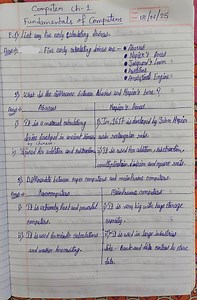 Computer Ch-1
Fundamentals of Computer
18/04/25
Q.1) List any five early calculating devices.
Ans→ Five early calculating devices are -
• Abacus
• Napier's Bones
• Jacquard's Loom
• Pascaline
• Analytical Engine
2) What is the difference between Abacus and Napier's bone?
Ans→ Abacus
Napier's Bones
1) It is a manual calculating
device developed in ancient
1) In 1617 is developed by John Napier
uses rectangular rods.
2) used for addition and subtraction.
2) It is used for addition, subtraction,
multiplication, division and square roots.
3) Differentiate between super computers and mainframe computers.
Ans→ Supercomputers
Mainframe computers
1) It is extremely fast and powerful
computers.
1) It is very big with large storage
capacity.
2) It is used calculations
and weather forecasting.
2) It is used in large industries
like - Bank and data centres to store
data.